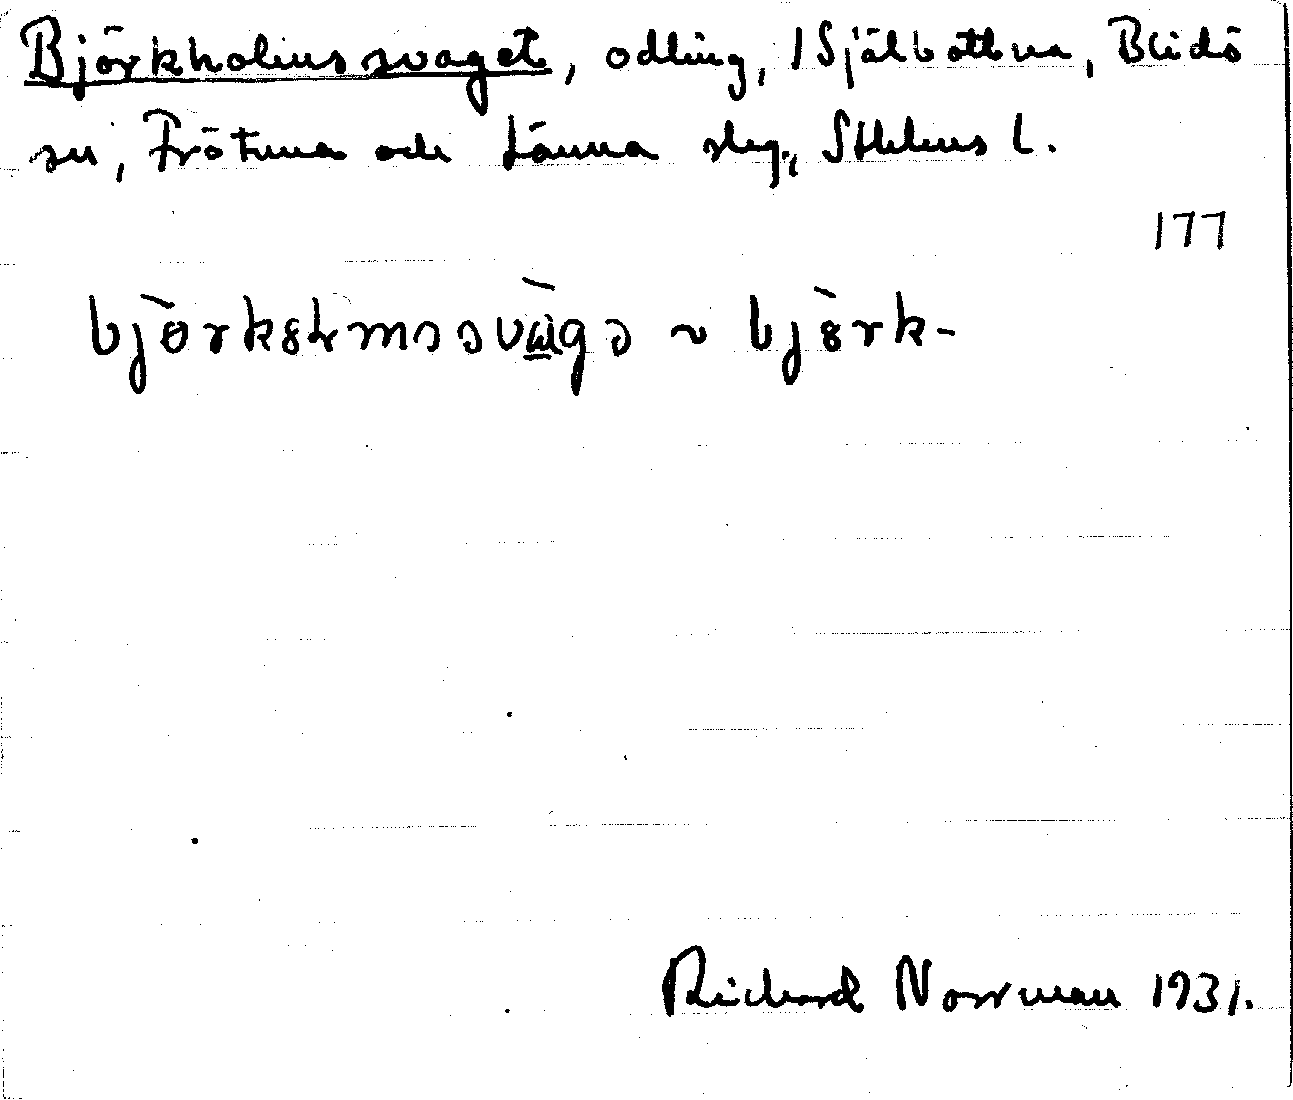 Björkholmssvaget, odling, Själbottna, Blidö
sn, Frötuna och Länna slag., Sthlms l.
177
björkslmssvägə ~ björk-
Richard Norrman 1931.